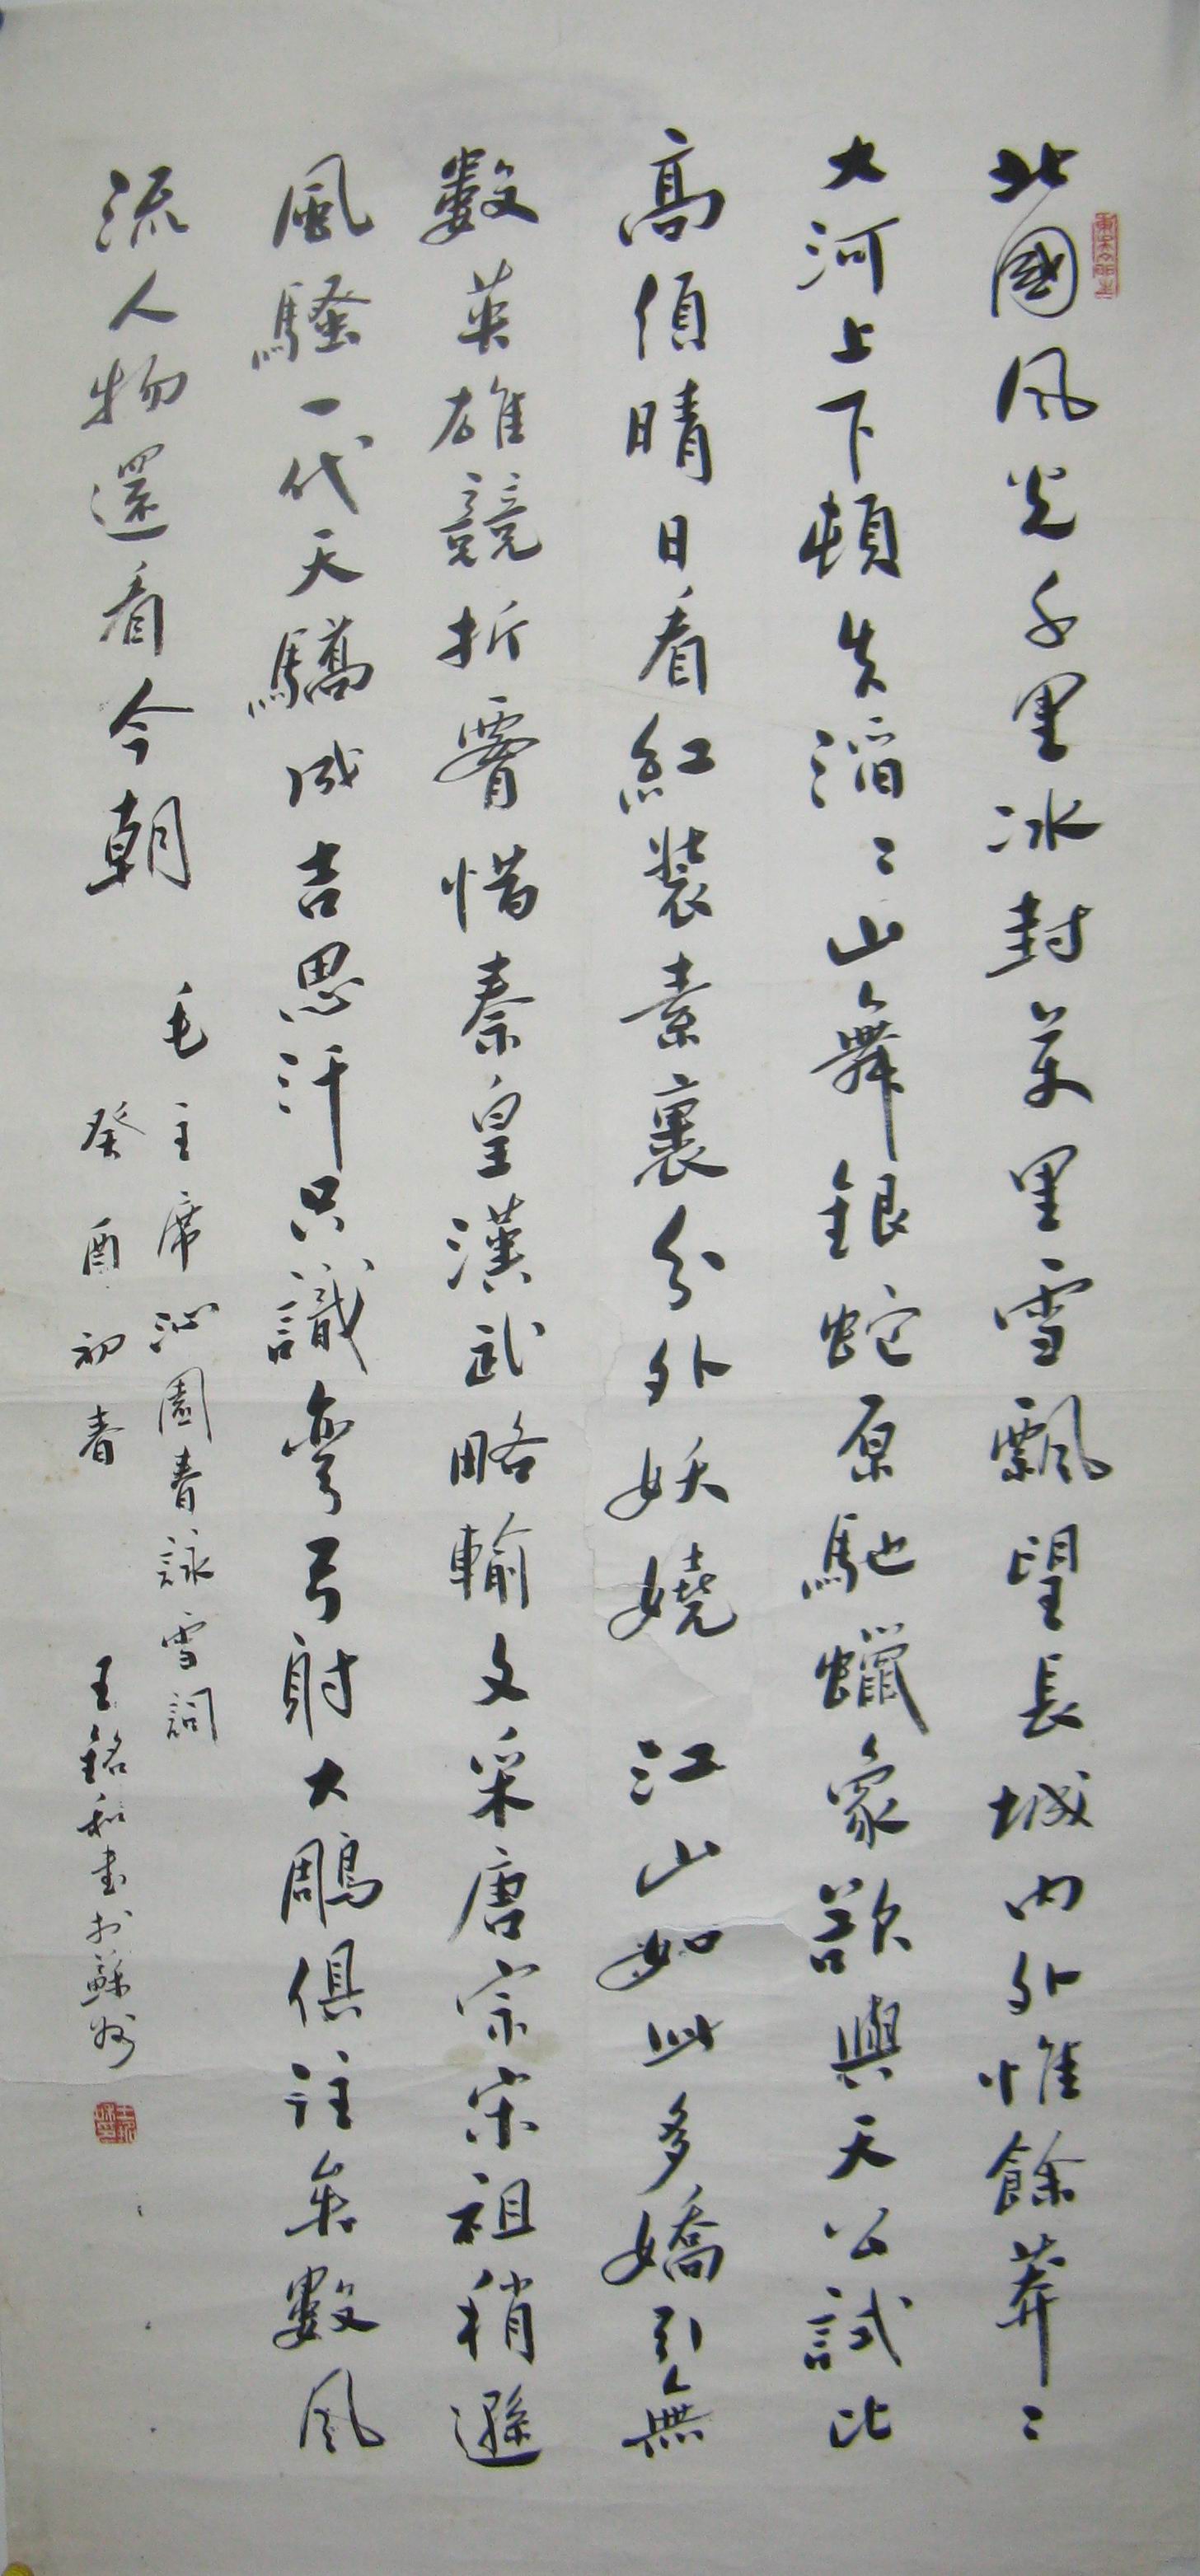 北國风光千里冰封萬里雪飄望長城内外惟餘莽〻
大河上下頓失滔〻山舞銀蛇原馳蠟象欲與天公試比
高須晴日看紅裝素裹分外妖嬈 江山如此多嬌引無
數英雄競折腰惜秦皇漢武略輸文采唐宗宋祖稍遜
風騷一代天驕成吉思汗只識彎弓射大鵰俱往矣數风
流人物還看今朝
毛主席沁園春詠雪詞
癸酉初春 王銘和書於蘇州